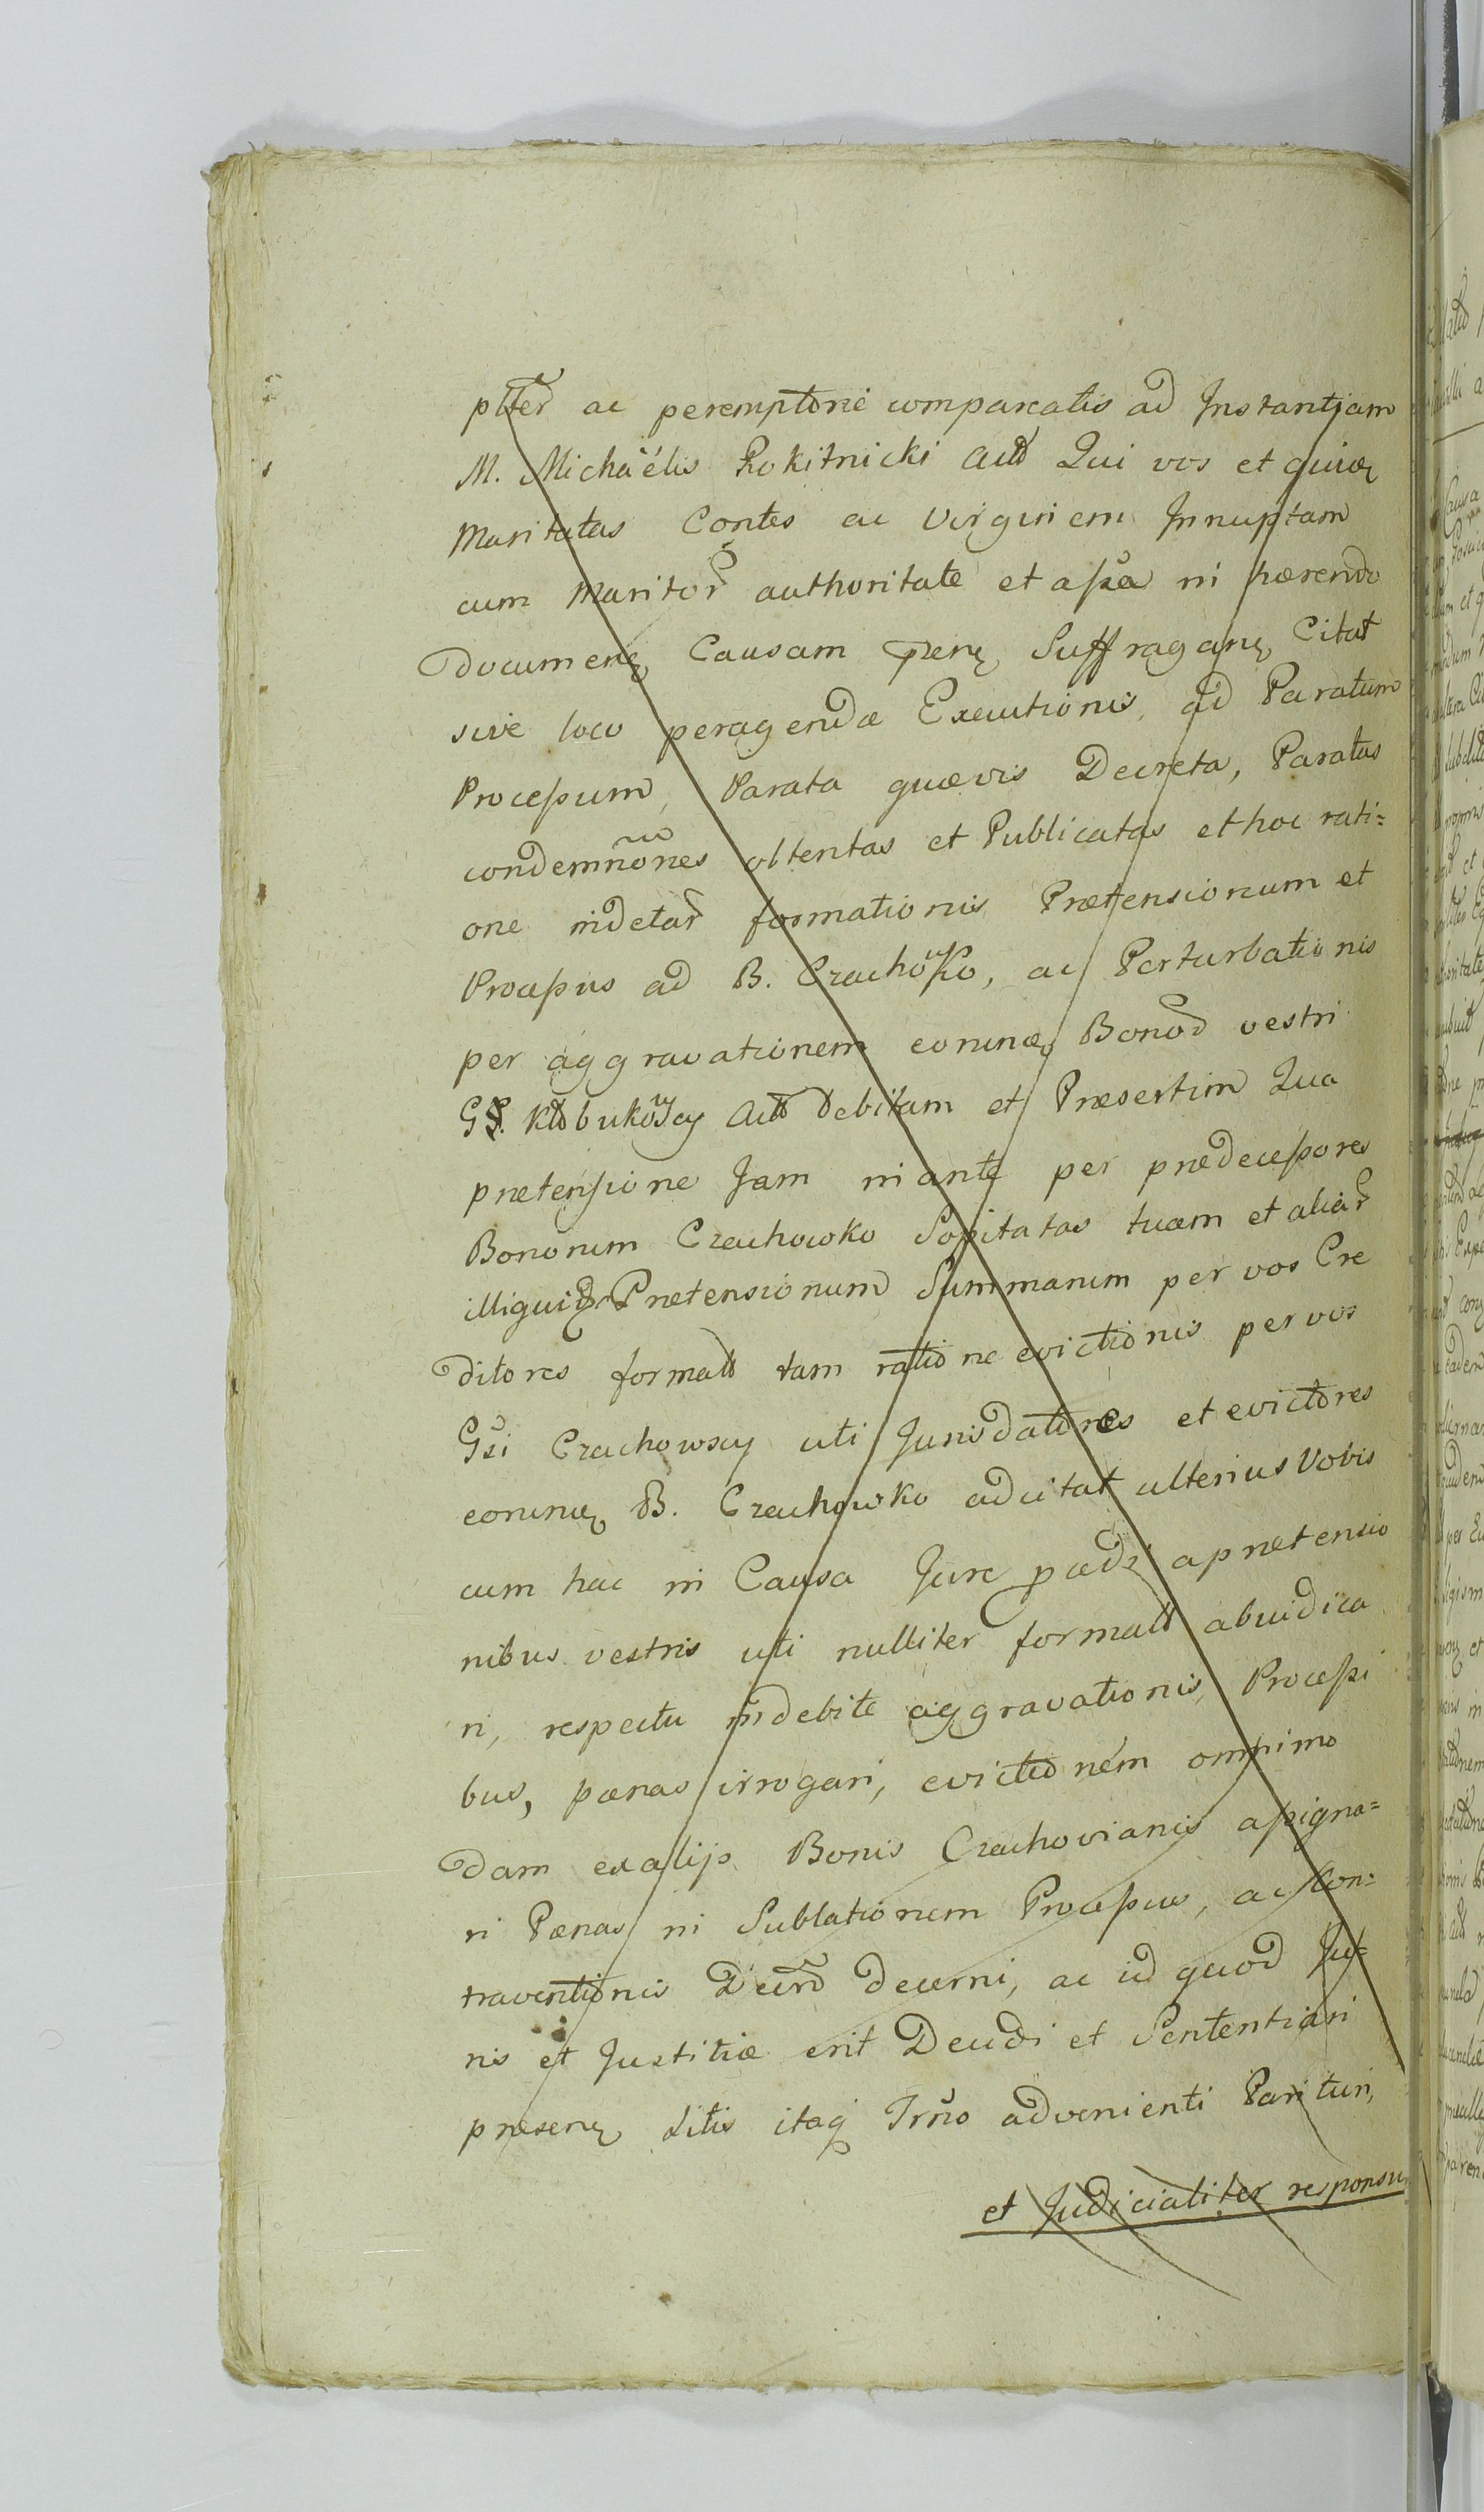 ptter ac peremptorie compareatis ad Instantjam
M. Michaëlis Rokitnicki Actt Qui vos et quidem
Maritatas Contes ac Virginem Innuptam
cum Maritor authoritate et assa in hærendo
documen Causam Suffragan Citat
sive loco peragendæ Executionis, ad Paratum
Processum, Parata quævis Decreta, Paratas
condemnõnes obtentas et Publicatas et hoc rati=
one indetar formationis Prætensionum et
Processus ad B. Czachowko, ac Perturbationis
per aggravationem eorum Bonod vestri
GG. Kłobukowscy Actt debitam et Præsertim Qua
prætensione Jam in ante per prædecessores
Bonorum Czachowko Sopitatas tuam et aliar
illiquid Prætensionum Summarum per vos Cre
ditores formatt tam ratione evictionis per vos
Gsi Czachowscy uti Jurisdatores et evictores
eorum B. Czachowko adcitat ulterius Vobis
cum hac in Causa Jure pædi a prætensio
nibus vestris uti nulliter formatt abiudica
ri, respectu indebite aggravationis, Processi
bus, pænas irrogari, evictionem omnimo
dam ex alijs Bonis Czachovianis assigna=
ri Pænas in Sublationem Processus, ac Con=
traventionis Decrd decerni, ac id quod Ju=
ris et Justitiæ erit Decidi et Sententiari
præsen Litis itaq Trño advenienti Parituri,
et Judicialiter responsu